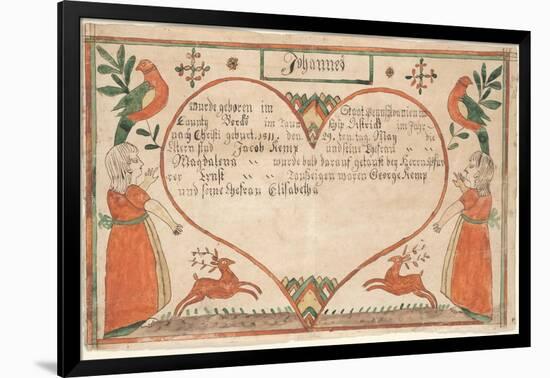 Johannes
wurde geboren im Staat Pennsylvanien im
County Berks im Taunschip District im Jahr
nach Christi geburt 1811 den 29 ten tag May die
Eltern sind Jacob Kemp und seine Ehefrau
Magdalena wurde bald darauf getauft der Herr
rer Ernst Taufzeigen waren George Kemp
und seine Ehefrau Elisabetha